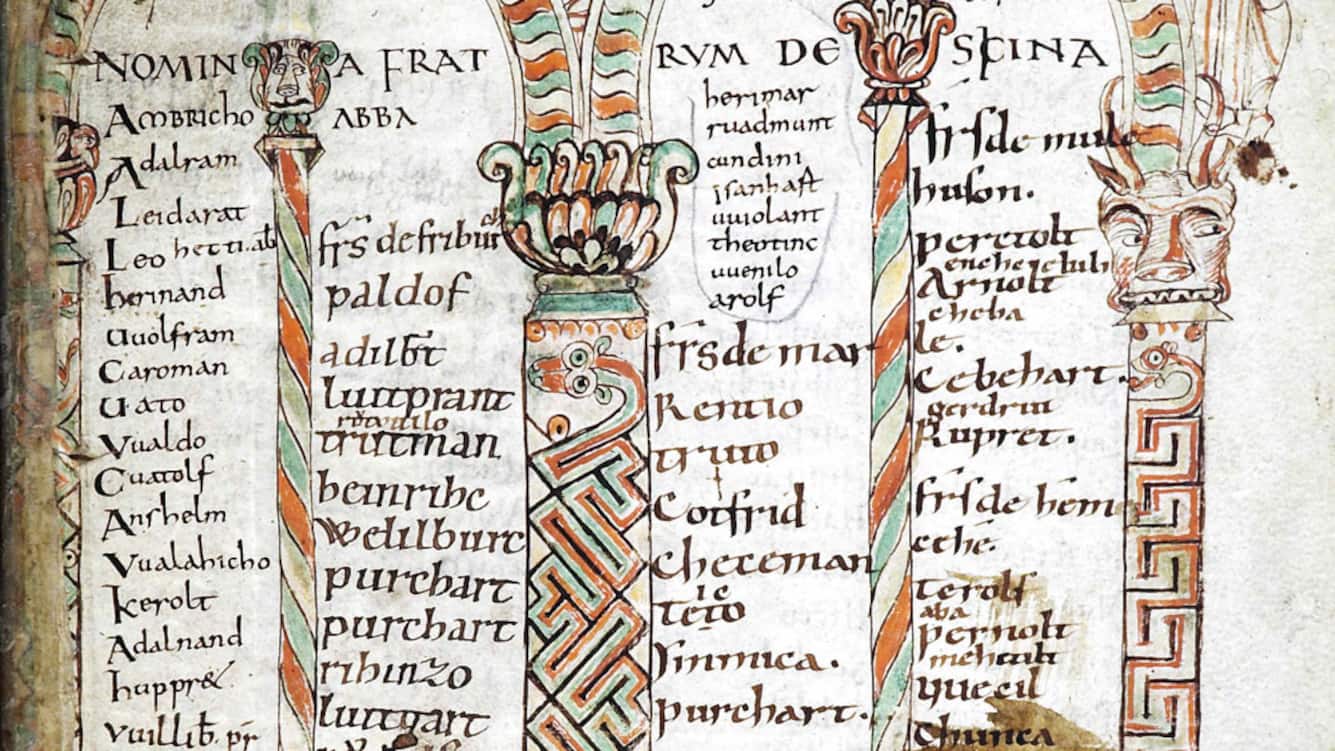 NOMINA FRATRVM DE SCINA
AMBRICHO ABBA
Adalram
Leidarat
Leo hetti ab
herinand
Uuolfram
Caroman
Uato
Vualdo
Cuatolf
Anshelm
Vualahicho
Kerolt
Adalnand
huppr&
vuillib. pr
frs de fribur
paldof
adilbt
luitprant
trutman
heinrihc
Welilburc
purchart
purchart
rihinzo
luitgart
herimar
ruadmunt
cundini
isanhaft
uuiolant
theotinc
uuenilo
arolf
frs de mar
Rentio
truto
Cotfrid
cheteman
Sinnica.
purchart.
frs de mule
huson.
peretolt
Arnolt
cheba
le.
Cebehart.
gerdrut
Rupret.
frs de heme
cehe.
terolf
aba
pernolt
Chunca